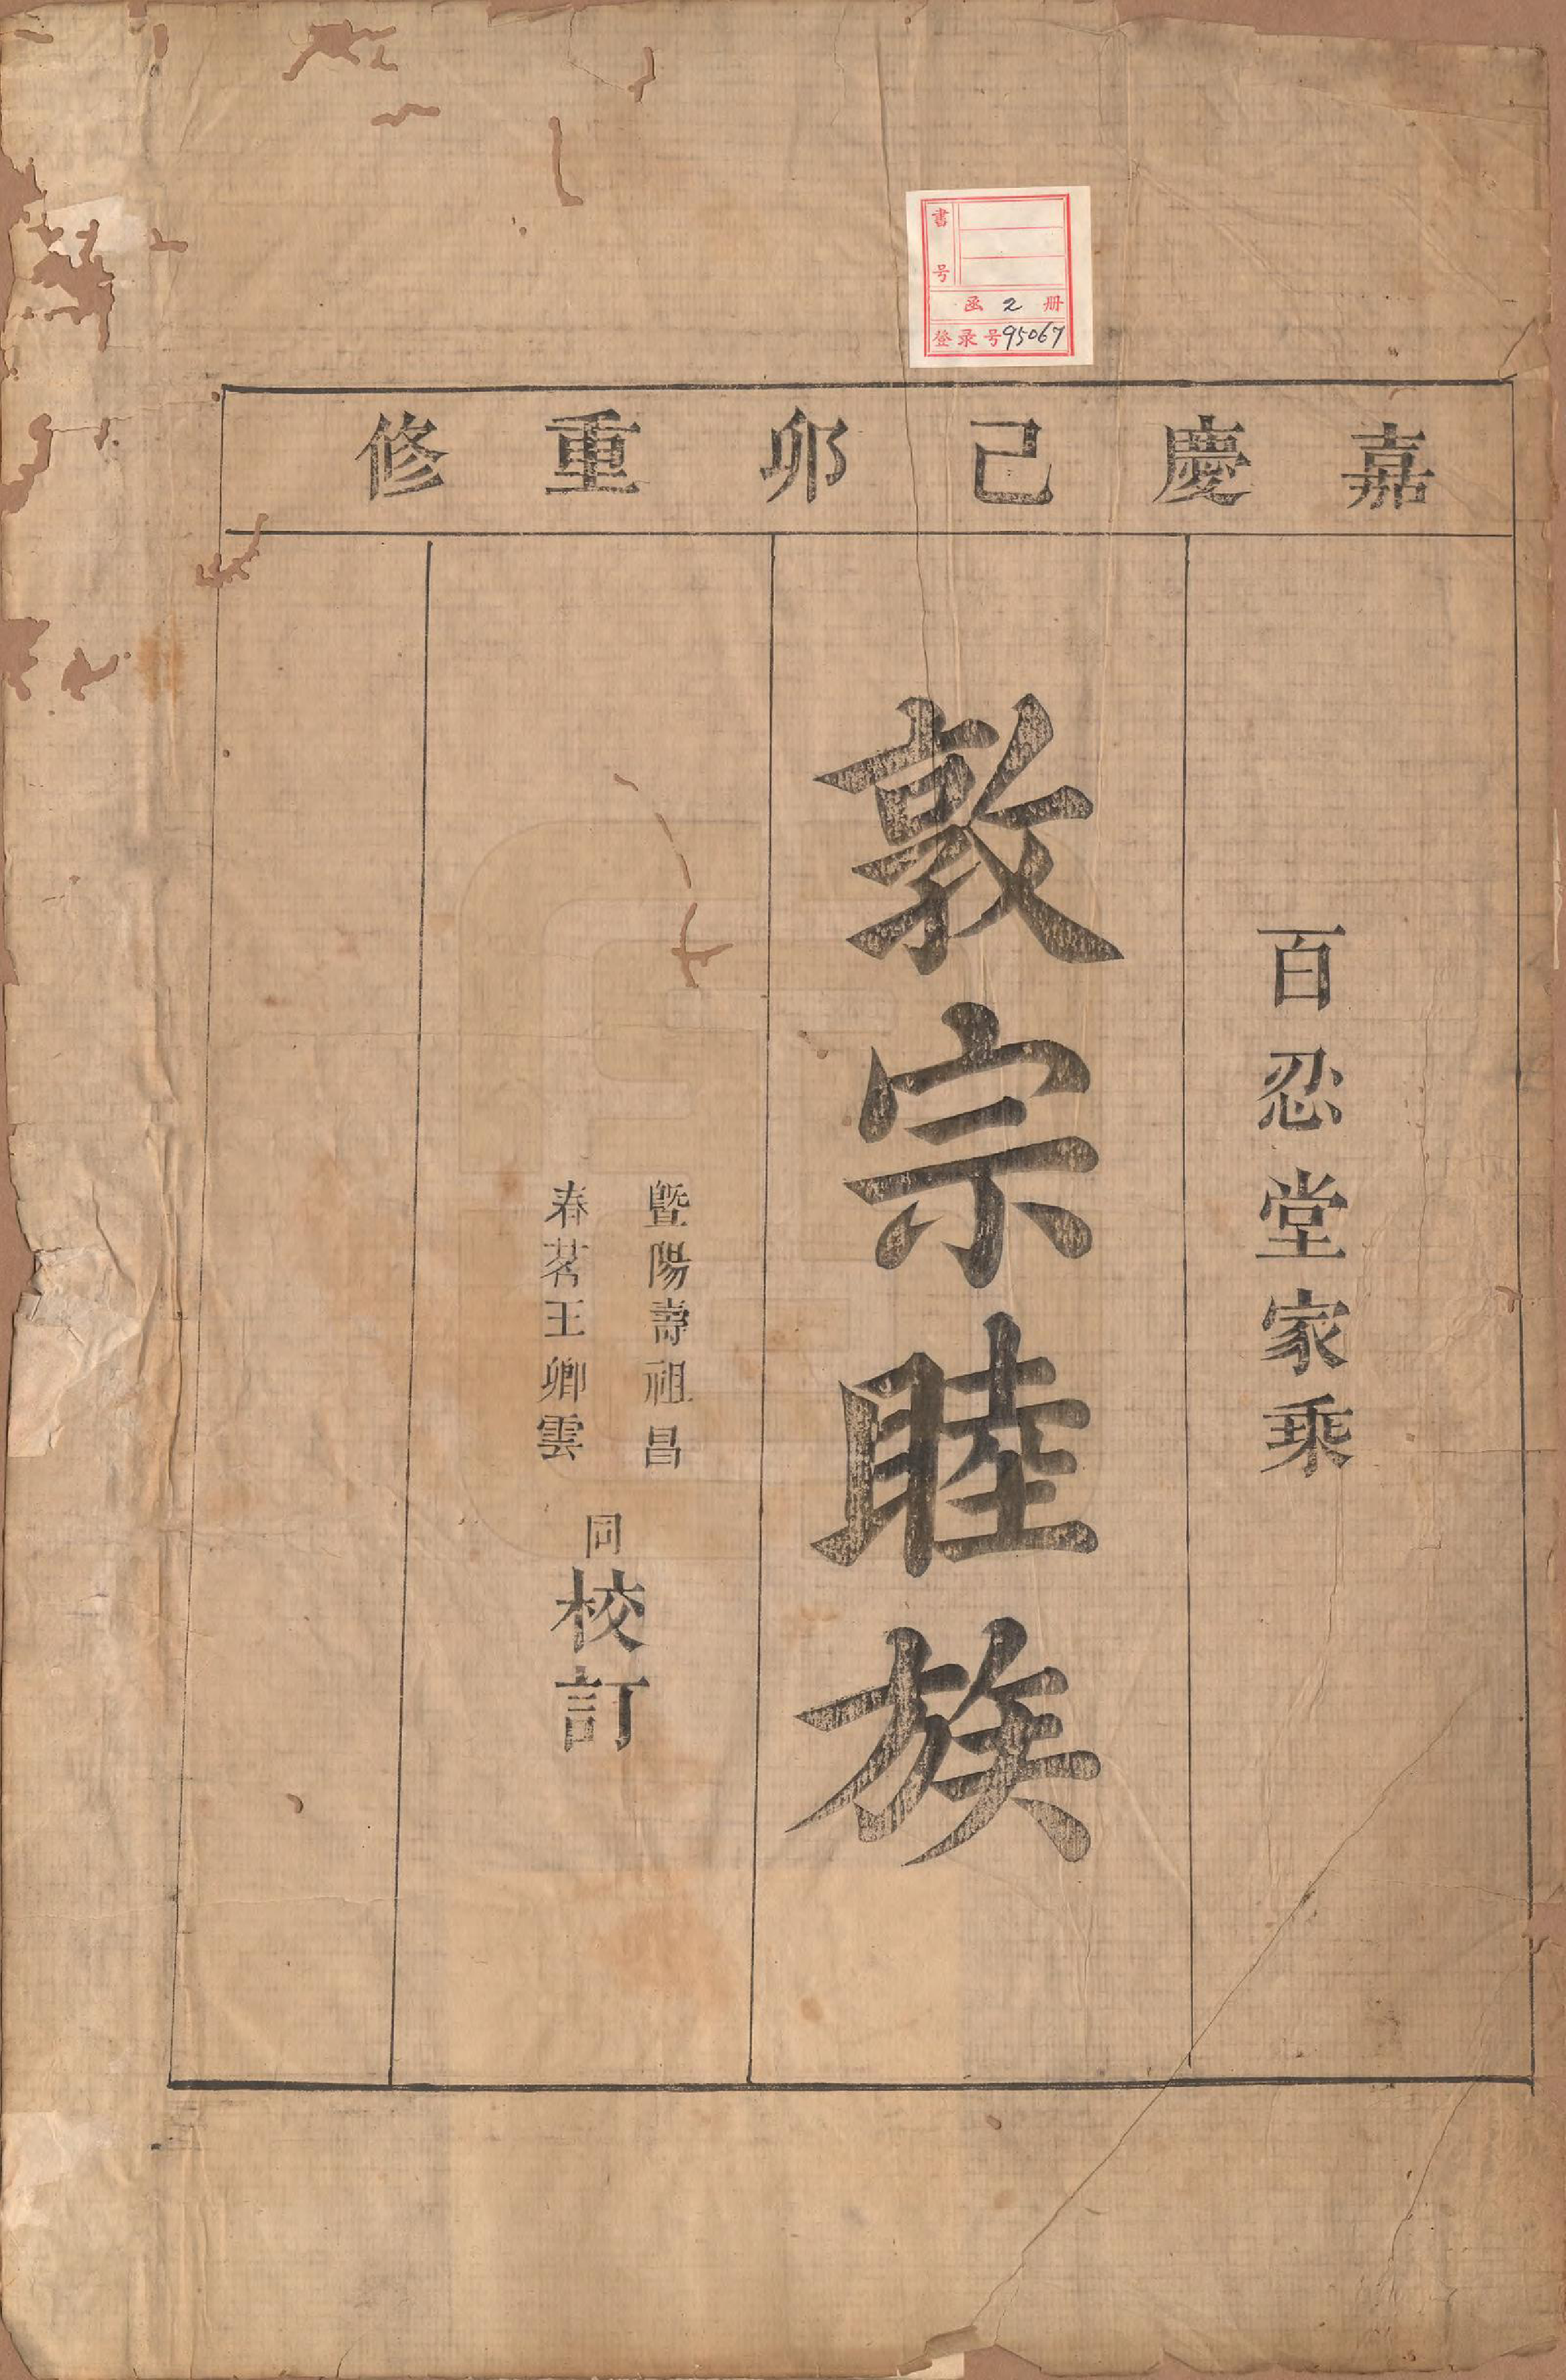 書号
函 2 册
登录号95067
嘉慶己卯重修
百忍堂家乗
敦宗睦族
暨陽壽祖昌
春茗王卿雲
同校訂